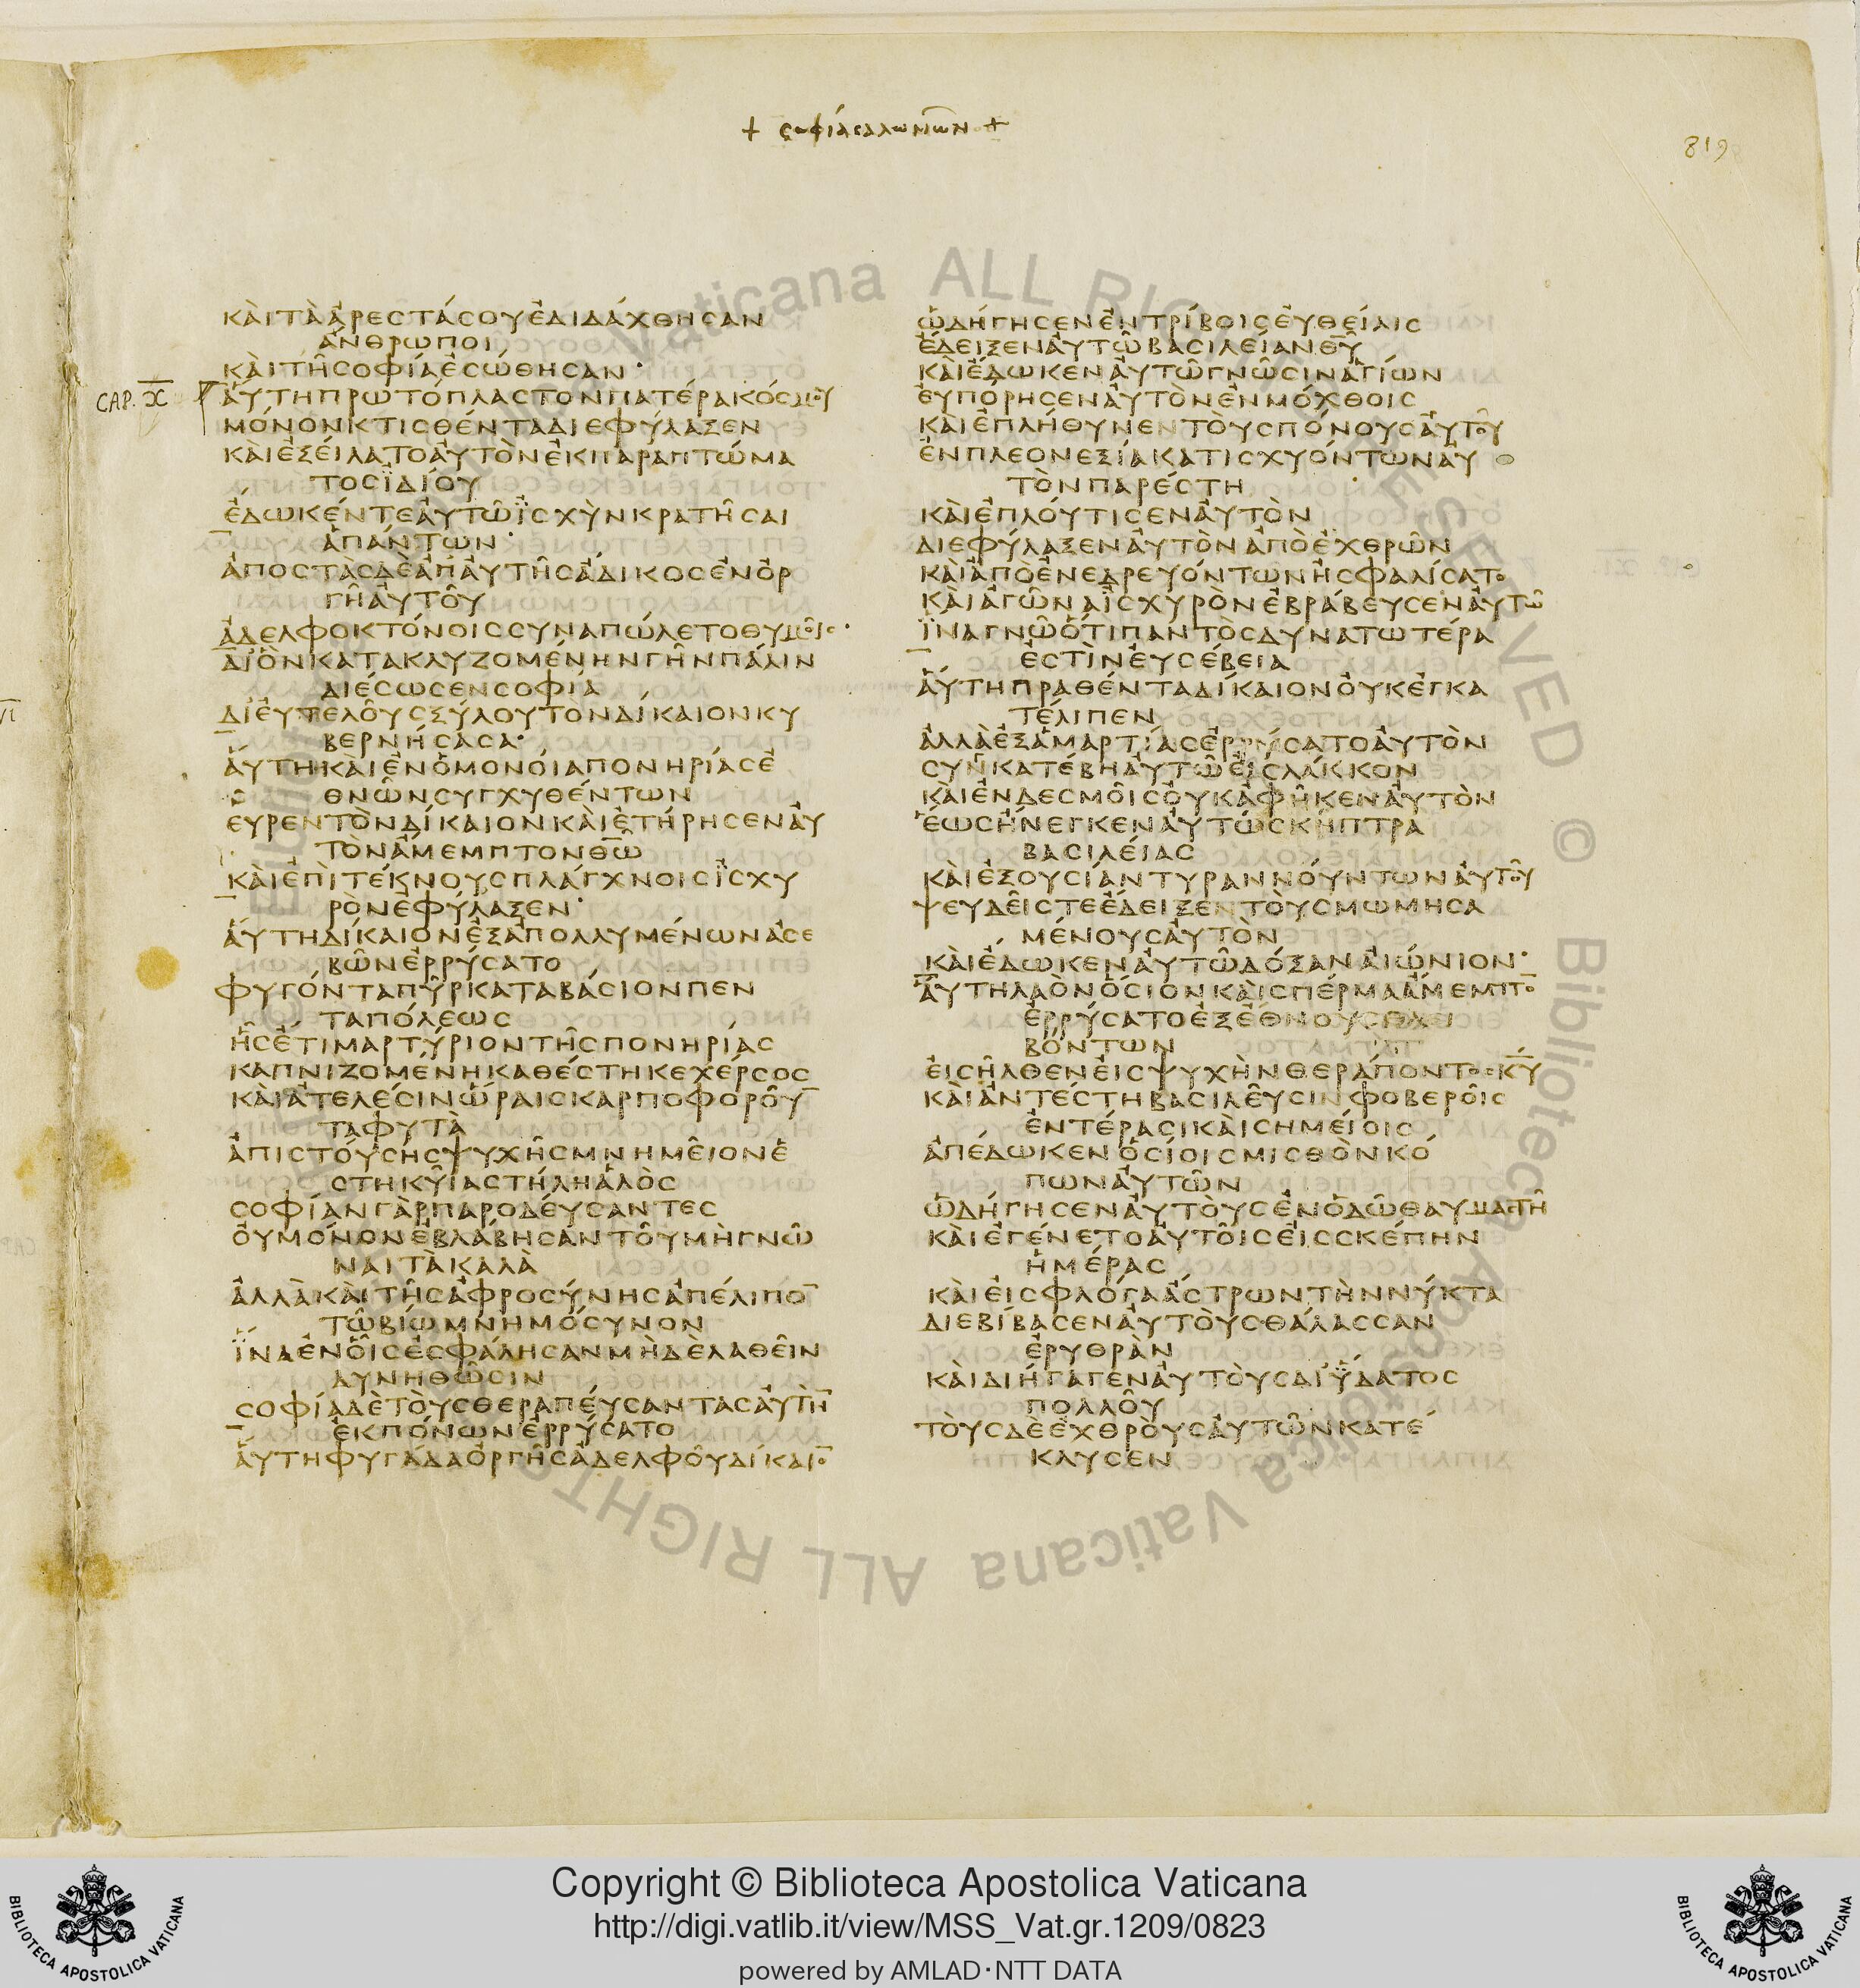 + σοφία σαλωμῶν +
819
ΚΑΙΤΑΑΡΕΣΤΑΣΟΥΕΔΙΔΑΧΘΗΣΑΝ
ΑΝΘΡΩΠΟΙ
ΚΑΙΤΗΣΟΦΙΑΕΣΩΘΗΣΑΝ·
CAP. X
ΑΥΤΗΠΡΩΤΟΠΛΑΣΤΟΝΠΑΤΕΡΑΚΟΣΜΟΥ
ΜΟΝΟΝΚΤΙΣΘΕΝΤΑΔΙΕΦΥΛΑΞΕΝ
ΚΑΙΕΞΕΙΛΑΤΟΑΥΤΟΝΕΚΠΑΡΑΠΤΩΜΑ
ΤΟΣΪΔΙΟΥ
ΕΔΩΚΕΝΤΕΑΥΤΩΪΣΧΥΝΚΡΑΤΗΣΑΙ
ΑΠΑΝΤΩΝ·
ΑΠΟΣΤΑΣΔΕΑΠΑΥΤΗΣΑΔΙΚΟΣΕΝΟΡ
ΓΗΑΥΤΟΥ
ΑΔΕΛΦΟΚΤΟΝΟΙΣΣΥΝΑΠΩΛΕΤΟΘΥΜΟΙΣ·
ΔΙΟΝΚΑΤΑΚΛΥΖΟΜΕΝΗΝΓΗΝΠΑΛΙΝ
ΔΙΕΣΩΣΕΝΣΟΦΙΑ
ΔΙΕΥΤΕΛΟΥΣΞΥΛΟΥΤΟΝΔΙΚΑΙΟΝΚΥ
ΒΕΡΝΗΣΑΣΑ·
ΑΥΤΗΚΑΙΕΝΟΜΟΝΟΙΑΠΟΝΗΡΙΑΣΕ
ΘΝΩΝΣΥΓΧΥΘΕΝΤΩΝ
ΕΥΡΕΝΤΟΝΔΙΚΑΙΟΝΚΑΙΕΤΗΡΗΣΕΝΑΥ
ΤΟΝΑΜΕΜΠΤΟΝΘ̅Ω̅
ΚΑΙΕΠΙΤΕΚΝΟΥΣΠΛΑΓΧΝΟΙΣΪΣΧΥ
ΡΟΝΕΦΥΛΑΞΕΝ·
ΑΥΤΗΔΙΚΑΙΟΝΕΞΑΠΟΛΛΥΜΕΝΩΝΑΣΕ
ΒΩΝΕΡΡΥΣΑΤΟ
ΦΥΓΟΝΤΑΠΥΡΚΑΤΑΒΑΣΙΟΝΠΕΝ
ΤΑΠΟΛΕΩΣ
ΗΣΕΤΙΜΑΡΤΥΡΙΟΝΤΗΣΠΟΝΗΡΙΑΣ
ΚΑΠΝΙΖΟΜΕΝΗΚΑΘΕΣΤΗΚΕΧΕΡΣΟΣ
ΚΑΙΑΤΕΛΕΣΙΝΩΡΑΙΣΚΑΡΠΟΦΟΡΟΥ̅
ΤΑΦΥΤΑ
ΑΠΙΣΤΟΥΣΗΣΨΥΧΗΣΜΝΗΜΕΙΟΝΕ
ΣΤΗΚΥΙΑΣΤΗΛΗΑΛΟΣ
ΣΟΦΙΑΝΓΑΡΠΑΡΟΔΕΥΣΑΝΤΕΣ
ΟΥΜΟΝΟΝΕΒΛΑΒΗΣΑΝΤΟΥΜΗΓΝΩ
ΝΑΙΤΑΚΑΛΑ
ΑΛΛΑΚΑΙΤΗΣΑΦΡΟΣΥΝΗΣΑΠΕΛΙΠΟ̅
ΤΩΒΙΩΜΝΗΜΟΣΥΝΟΝ
ΪΝΑΕΝΟΙΣΕΣΦΑΛΗΣΑΝΜΗΔΕΛΑΘΕΙΝ
ΔΥΝΗΘΩΣΙΝ
ΣΟΦΙΑΔΕΤΟΥΣΘΕΡΑΠΕΥΣΑΝΤΑΣΑΥΤΗ̅
ΕΚΠΟΝΩΝΕΡΡΥΣΑΤΟ
ΑΥΤΗΦΥΓΑΔΑΟΡΓΗΣΑΔΕΛΦΟΥΔΙΚΑΙΟ̅
ΩΔΗΓΗΣΕΝΕΝΤΡΙΒΟΙΣΕΥΘΕΙΑΙΣ
ΕΔΕΙΞΕΝΑΥΤΩΒΑΣΙΛΕΙΑΝΘ̅Υ̅
ΚΑΙΕΔΩΚΕΝΑΥΤΩΓΝΩΣΙΝΑΓΙΩΝ
ΕΥΠΟΡΗΣΕΝΑΥΤΟΝΕΝΜΟΧΘΟΙΣ
ΚΑΙΕΠΛΗΘΥΝΕΝΤΟΥΣΠΟΝΟΥΣΑΥΤΟΥ
ΕΝΠΛΕΟΝΕΞΙΑΚΑΤΙΣΧΥΟΝΤΩΝΑΥ
ΤΟΝΠΑΡΕΣΤΗ
ΚΑΙΕΠΛΟΥΤΙΣΕΝΑΥΤΟΝ
ΔΙΕΦΥΛΑΞΕΝΑΥΤΟΝΑΠΟΕΧΘΡΩΝ
ΚΑΙΑΠΟΕΝΕΔΡΕΥΟΝΤΩΝΗΣΦΑΛΙΣΑΤΟ
ΚΑΙΑΓΩΝΑΪΣΧΥΡΟΝΕΒΡΑΒΕΥΣΕΝΑΥΤΩ
ΪΝΑΓΝΩΟΤΙΠΑΝΤΟΣΔΥΝΑΤΩΤΕΡΑ
ΕΣΤΙΝΕΥΣΕΒΕΙΑ
ΑΥΤΗΠΡΑΘΕΝΤΑΔΙΚΑΙΟΝΟΥΚΕΓΚΑ
ΤΕΛΙΠΕΝ
ΑΛΛΑΕΞΑΜΑΡΤΙΑΣΕΡΡΥΣΑΤΟΑΥΤΟΝ
ΣΥΝΚΑΤΕΒΗΑΥΤΩΕΙΣΛΑΚΚΟΝ
ΚΑΙΕΝΔΕΣΜΟΙΣΟΥΚΑΦΗΚΕΝΑΥΤΟΝ
ΕΩΣΗΝΕΓΚΕΝΑΥΤΩΣΚΗΠΤΡΑ
ΒΑΣΙΛΕΙΑΣ
ΚΑΙΕΞΟΥΣΙΑΝΤΥΡΑΝΝΟΥΝΤΩΝΑΥΤΟΥ
ΨΕΥΔΕΙΣΤΕΕΔΕΙΞΕΝΤΟΥΣΜΩΜΗΣΑ
ΜΕΝΟΥΣΑΥΤΟΝ
ΚΑΙΕΔΩΚΕΝΑΥΤΩΔΟΞΑΝΑΙΩΝΙΟΝ·
ΑΥΤΗΛΑΟΝΟΣΙΟΝΚΑΙΣΠΕΡΜΑΑΜΕΜΠΤΟ̅
ΕΡΡΥΣΑΤΟΕΞΕΘΝΟΥΣΘΛΕΙ
ΒΟΝΤΩΝ
ΕΙΣΗΛΘΕΝΕΙΣΨΥΧΗΝΘΕΡΑΠΟΝΤΟΣΚ̅Υ̅
ΚΑΙΑΝΤΕΣΤΗΒΑΣΙΛΕΥΣΙΝΦΟΒΕΡΟΙΣ
ΕΝΤΕΡΑΣΙΚΑΙΣΗΜΕΙΟΙΣ
ΑΠΕΔΩΚΕΝΟΣΙΟΙΣΜΙΣΘΟΝΚΟ
ΠΩΝΑΥΤΩΝ
ΩΔΗΓΗΣΕΝΑΥΤΟΥΣΕΝΟΔΩΘΑΥΜΑΣΤΗ
ΚΑΙΕΓΕΝΕΤΟΑΥΤΟΙΣΕΙΣΣΚΕΠΗΝ
ΗΜΕΡΑΣ
ΚΑΙΕΙΣΦΛΟΓΑΑΣΤΡΩΝΤΗΝΝΥΚΤΑ
ΔΙΕΒΙΒΑΣΕΝΑΥΤΟΥΣΘΑΛΑΣΣΑΝ
ΕΡΥΘΡΑΝ
ΚΑΙΔΙΗΓΑΓΕΝΑΥΤΟΥΣΔΙΫΔΑΤΟΣ
ΠΟΛΛΟΥ
ΤΟΥΣΔΕΕΧΘΡΟΥΣΑΥΤΩΝΚΑΤΕ
ΚΛΥΣΕΝ
Copyright © Biblioteca Apostolica Vaticana
http://digi.vatlib.it/view/MSS_Vat.gr.1209/0823
powered by AMLAD·NTT DATA
BIBLIOTECA APOSTOLICA VATICANA
BIBLIOTECA APOSTOLICA VATICANA